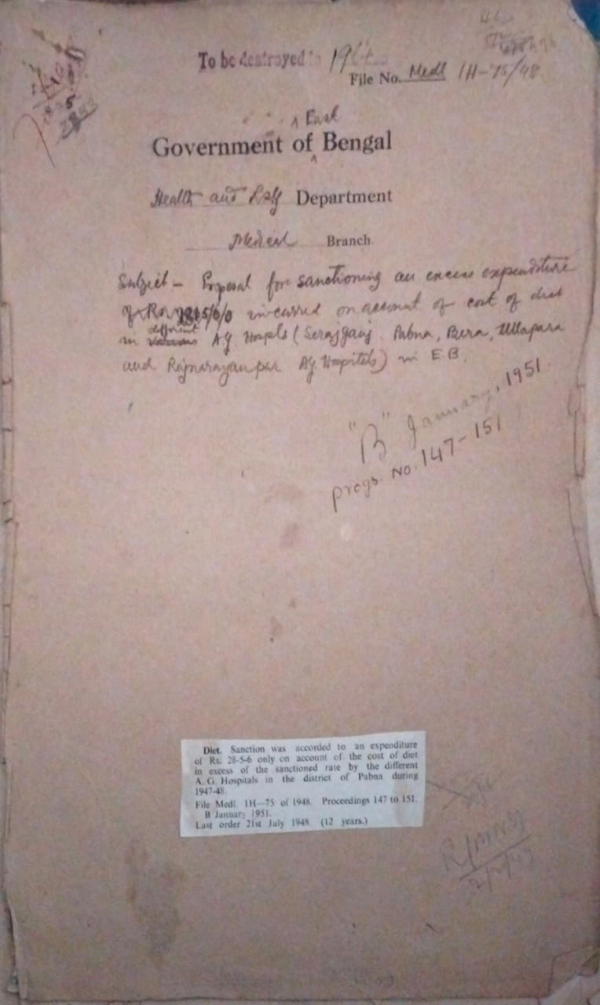 To be destroyed in 196
File No. Medl 1H-75/48
East
Government of Bengal
Health and Department
Medical Branch
Subject - Proposal for sanctioning an excess expenditure
of Rs. incurred on account of cost of diet
different
in various A.G. Hospls (Serajganj, Pabna, Bera, Ullapara
and Rajnarayanpur A.G. Hospitals) in E.B.
"B" January, 1951.
progs. No. 147-151
Diet. Sanction was accorded to an expenditure
of Rs. 28-5-6 only on account of the cost of diet
in excess of the sanctioned rate by the different
A. G. Hospitals in the district of Pabna during
1947-48.
File Medl. 1H—75 of 1948. Proceedings 147 to 151.
B January 1951.
Last order 21st July 1948. (12 years.)